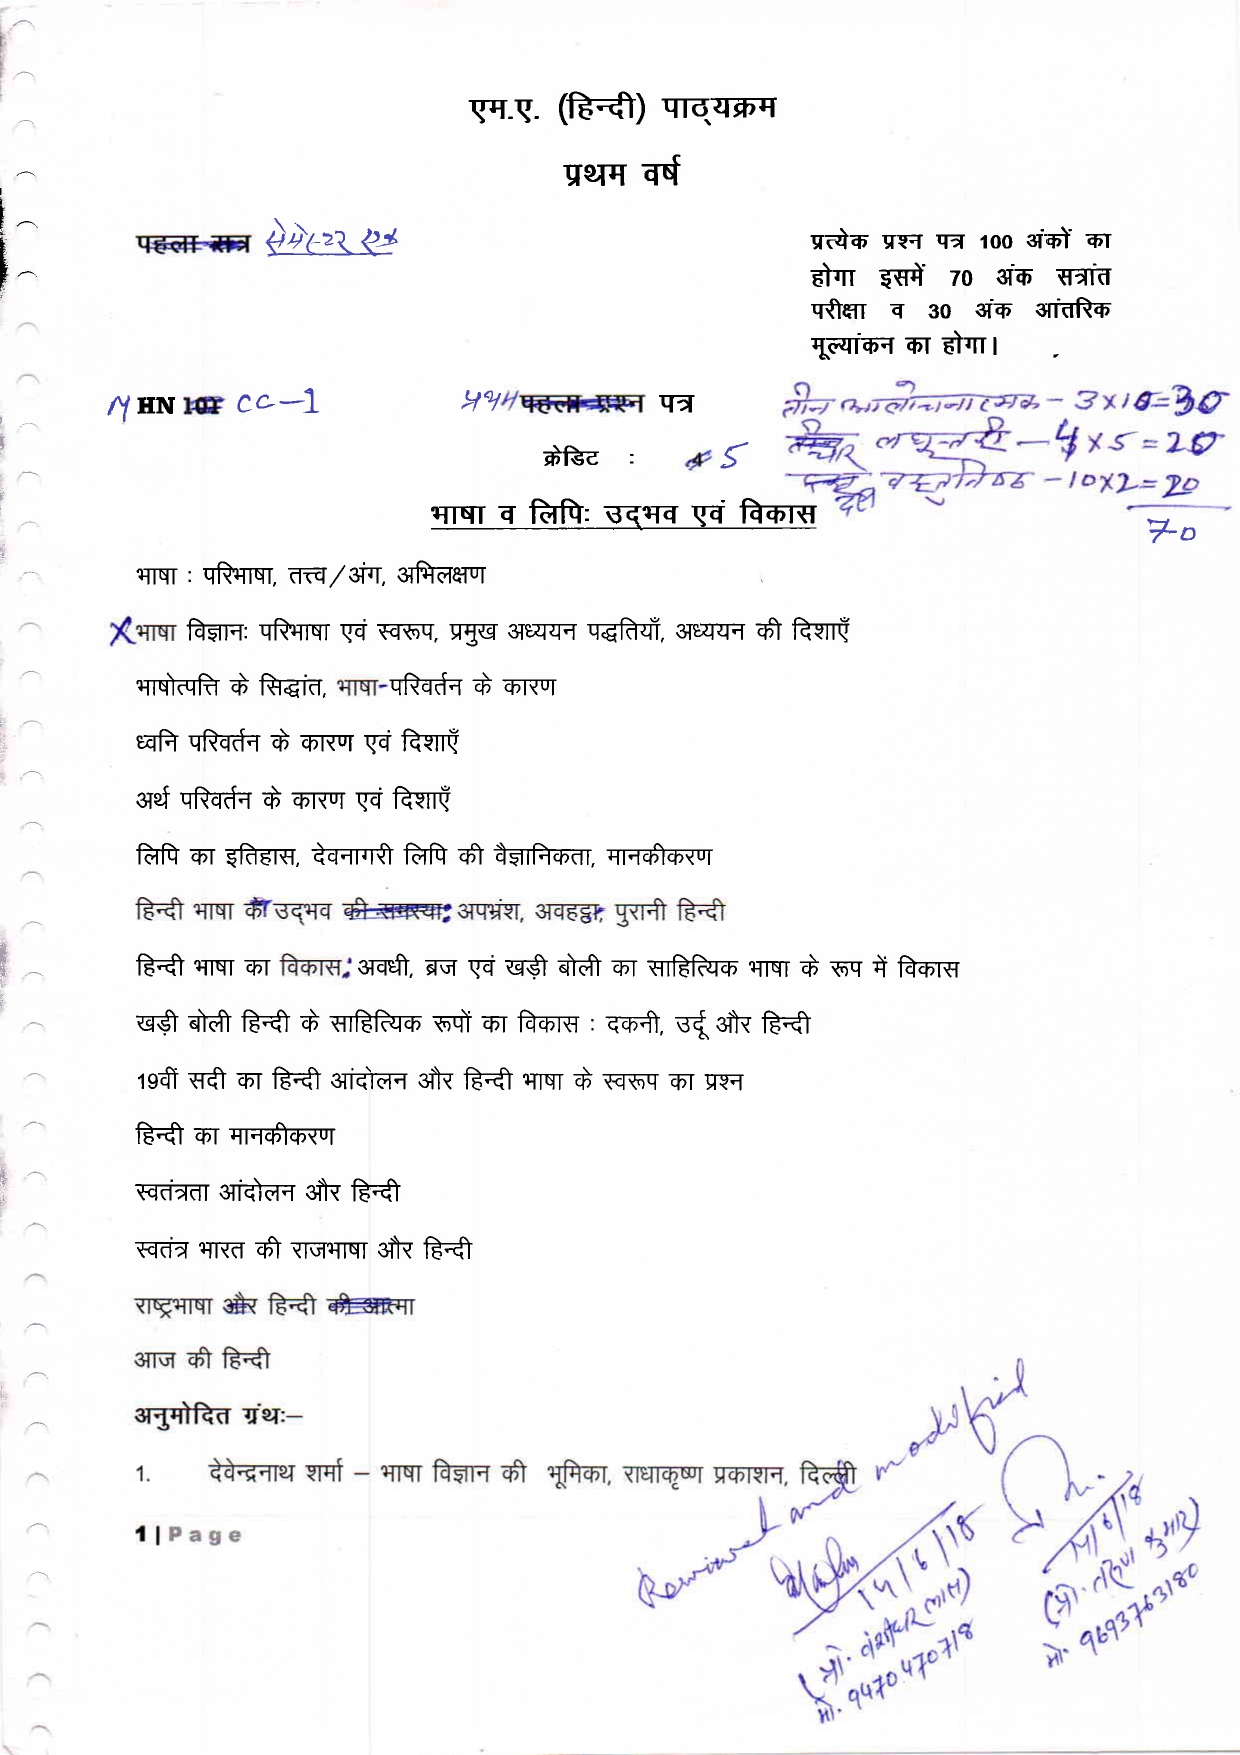 एम.ए. (हिन्दी) पाठ्यक्रम
प्रथम वर्ष
पहला सत्र सेमेस्टर एक
प्रत्येक प्रश्न पत्र 100 अंकों का
होगा इसमें 70 अंक सत्रांत
परीक्षा व 30 अंक आंतरिक
मूल्यांकन का होगा।
M HN 101 CC-1
प्रथम पहला प्रश्न पत्र
तीन आलोचनात्मक - 3x10=30
क्रेडिट : 4 5
चार लघूत्तरी - 4x5=20
दस वस्तुनिष्ठ - 10x2=20
70
भाषा व लिपिः उद्भव एवं विकास
भाषा : परिभाषा, तत्त्व/अंग, अभिलक्षण
X भाषा विज्ञानः परिभाषा एवं स्वरूप, प्रमुख अध्ययन पद्धतियाँ, अध्ययन की दिशाएँ
भाषोत्पत्ति के सिद्धांत, भाषा-परिवर्तन के कारण
ध्वनि परिवर्तन के कारण एवं दिशाएँ
अर्थ परिवर्तन के कारण एवं दिशाएँ
लिपि का इतिहास, देवनागरी लिपि की वैज्ञानिकता, मानकीकरण
हिन्दी भाषा का उद्भव की समस्या: अपभ्रंश, अवहट्ठ, पुरानी हिन्दी
हिन्दी भाषा का विकास: अवधी, ब्रज एवं खड़ी बोली का साहित्यिक भाषा के रूप में विकास
खड़ी बोली हिन्दी के साहित्यिक रूपों का विकास : दकनी, उर्दू और हिन्दी
19वीं सदी का हिन्दी आंदोलन और हिन्दी भाषा के स्वरूप का प्रश्न
हिन्दी का मानकीकरण
स्वतंत्रता आंदोलन और हिन्दी
स्वतंत्र भारत की राजभाषा और हिन्दी
राष्ट्रभाषा और हिन्दी की आत्मा
आज की हिन्दी
अनुमोदित ग्रंथः–
1. देवेन्द्रनाथ शर्मा – भाषा विज्ञान की भूमिका, राधाकृष्ण प्रकाशन, दिल्ली
1 | Page
Reviewed and modified
14/6/18
(प्रो. वंशीधर लाल)
मो. 9470470718
14/6/18
(प्रो. तरुण कुमार)
मो. 9693763180